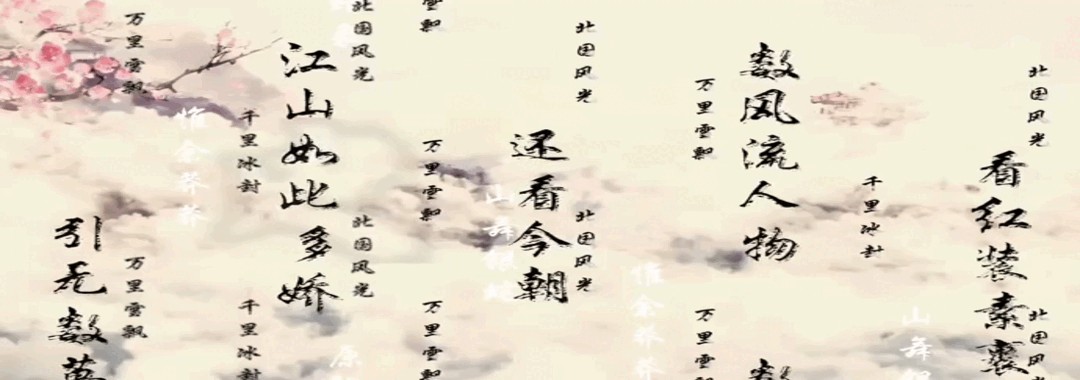 北国风光
北国风
看红装素裹
山舞银
千里冰封
数风流人物
数
万里雪飘
万里雪飘
惟余莽莽
北国风光
北国风光
还看今朝
山舞银蛇
雪飘
万里雪飘
万里雪
北国风光
北国风光
原
江山如此多娇
千里冰封
千里冰封
惟余莽莽
万里雪飘
万里雪飘
引无数英